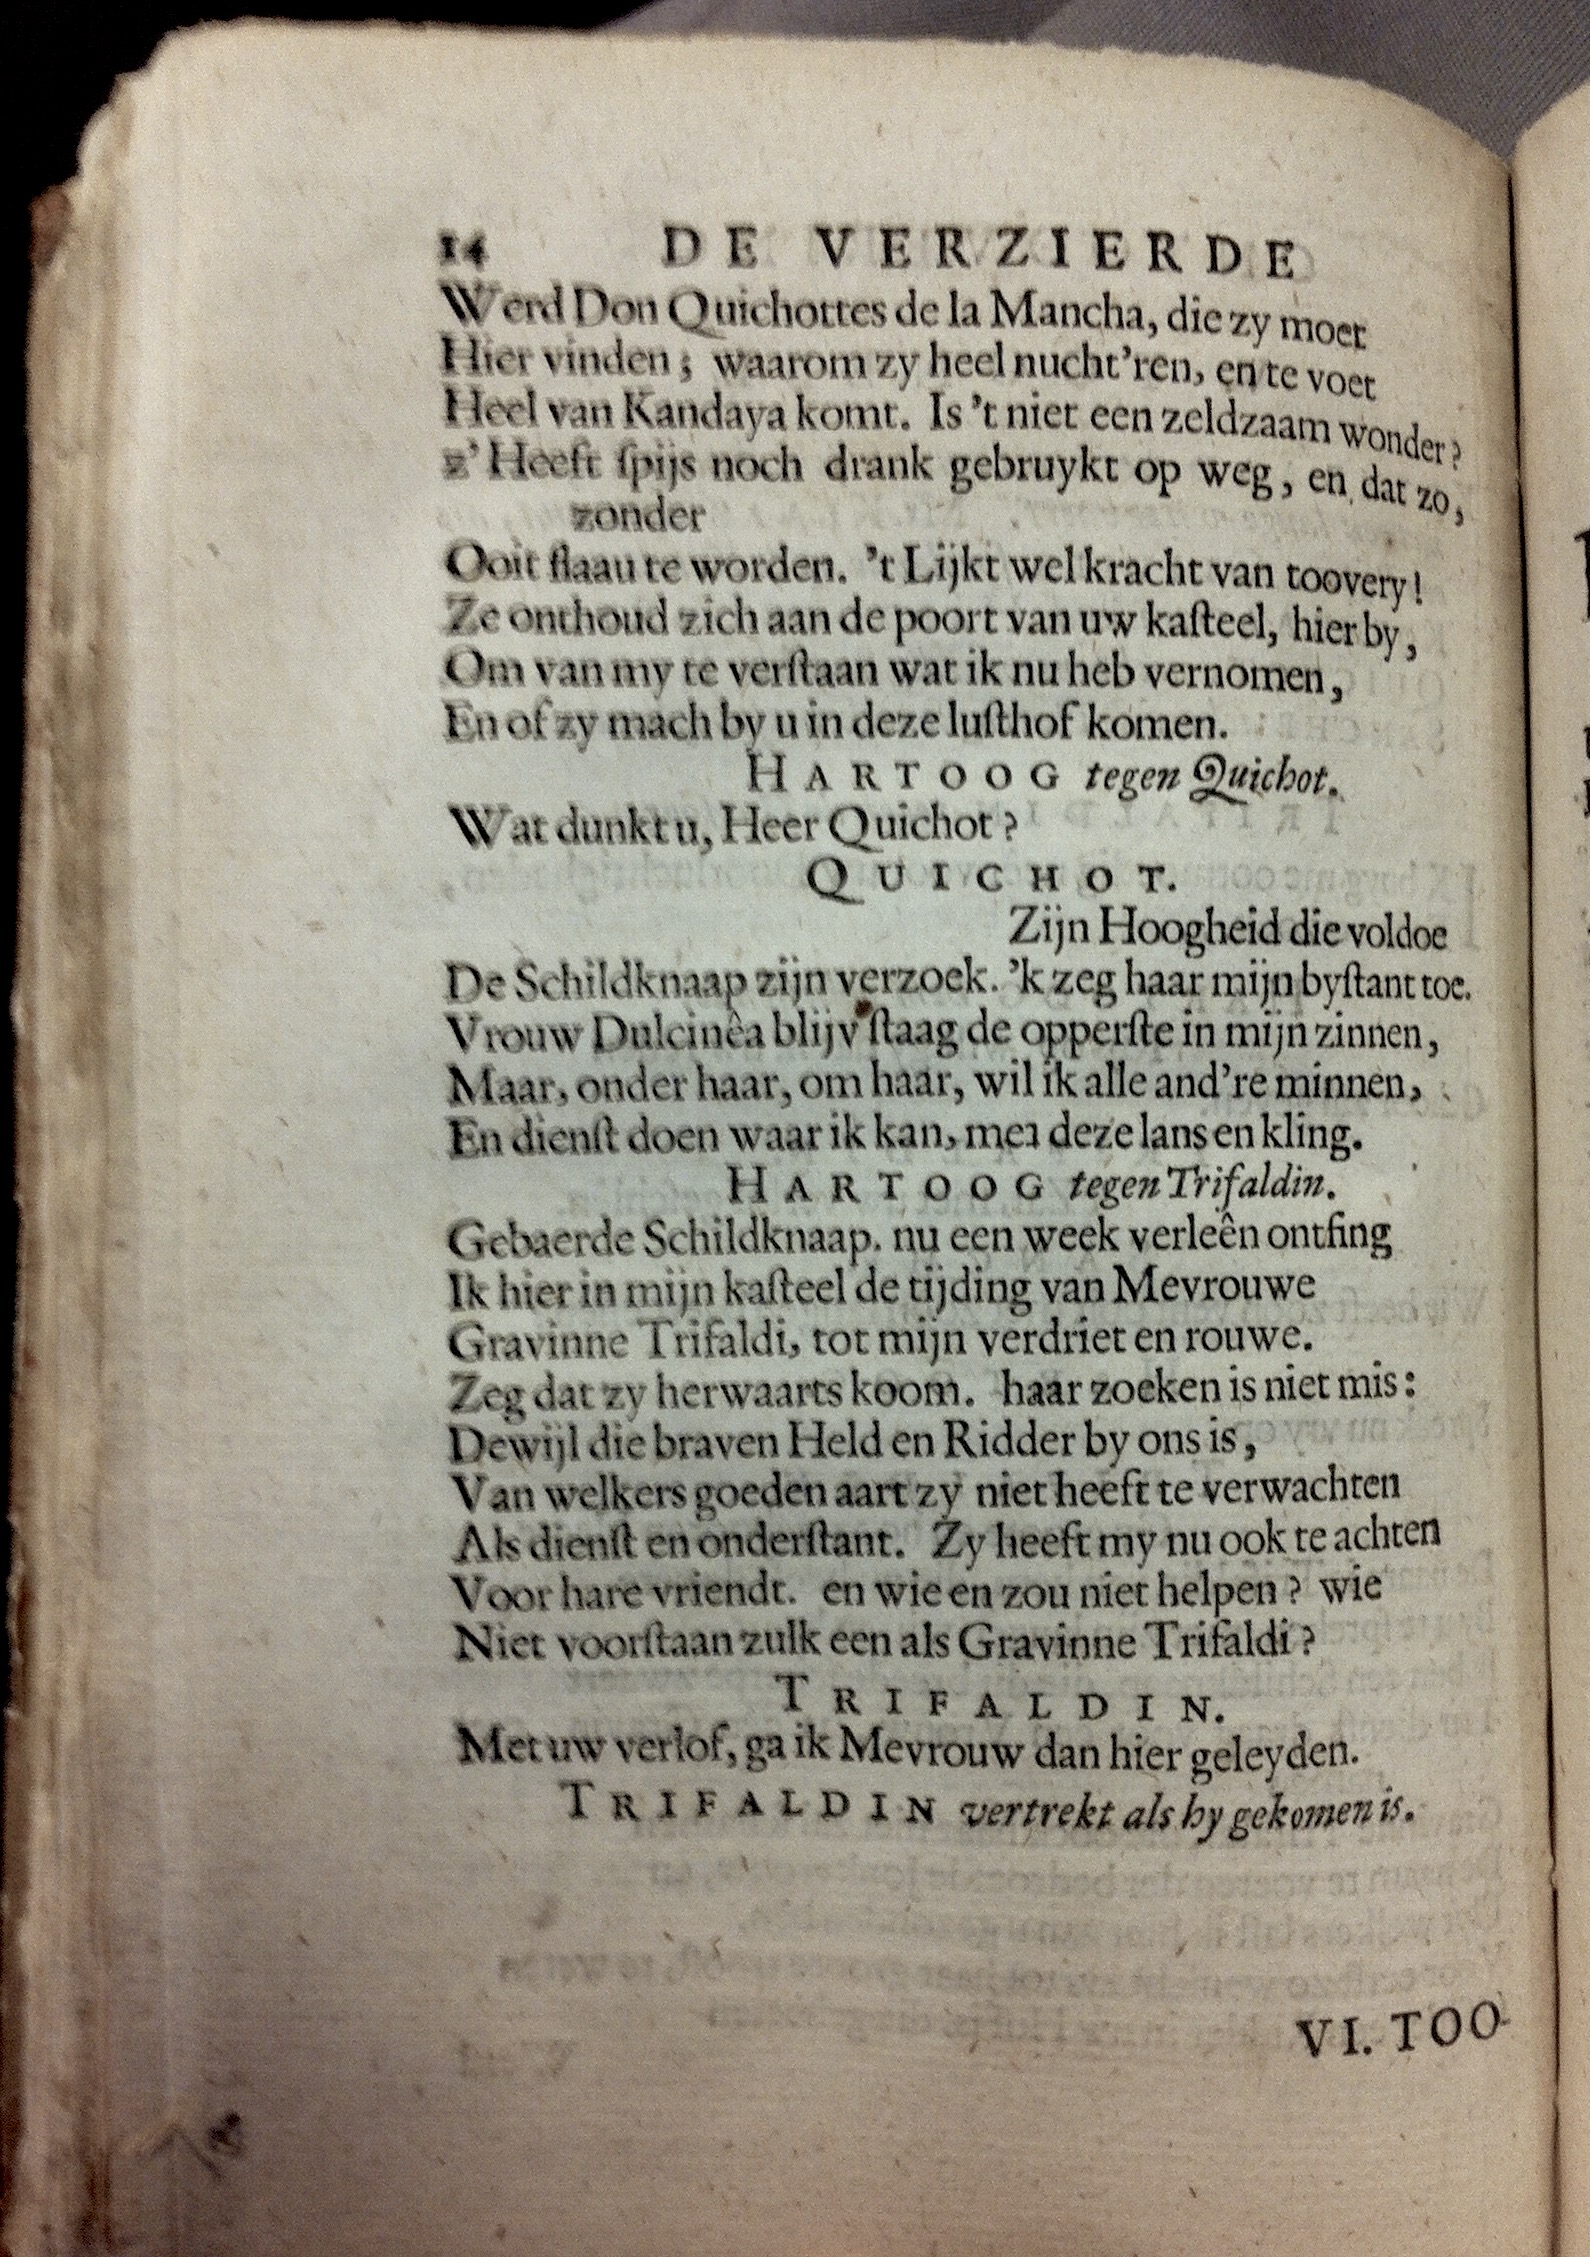 14 DE VERZIERDE
Werd Don Quichottes de la Mancha, die zy moet
Hier vinden; waarom zy heel nucht'ren, en te voet
Heel van Kandaya komt. Is 't niet een zeldzaam wonder?
z' Heeft ſpijs noch drank gebruykt op weg, en dat zo,
zonder
Ooit flaau te worden. 't Lijkt wel kracht van toovery!
Ze onthoud zich aan de poort van uw kaſteel, hier by,
Om van my te verſtaan wat ik nu heb vernomen,
En of zy mach by u in deze luſthof komen.
HARTOOG tegen Quichot.
Wat dunkt u, Heer Quichot?
QUICHOT.
Zijn Hoogheid die voldoe
De Schildknaap zijn verzoek. 'k zeg haar mijn byſtant toe.
Vrouw Dulcinêa blijv' ſtaag de opperſte in mijn zinnen,
Maar, onder haar, om haar, wil ik alle and're minnen,
En dienſt doen waar ik kan, met deze lans en kling.
HARTOOG tegen Trifaldin.
Gebaerde Schildknaap. nu een week verleên ontfing
Ik hier in mijn kaſteel de tijding van Mevrouwe
Gravinne Trifaldi, tot mijn verdriet en rouwe.
Zeg dat zy herwaarts koom. haar zoeken is niet mis:
Dewijl die braven Held en Ridder by ons is,
Van welkers goeden aart zy niet heeft te verwachten
Als dienſt en onderſtant. Zy heeft my nu ook te achten
Voor hare vriendt. en wie en zou niet helpen? wie
Niet voorſtaan zulk een als Gravinne Trifaldi?
TRIFALDIN.
Met uw verlof, ga ik Mevrouw dan hier geleyden.
TRIFALDIN vertrekt als hy gekomen is.
VI. TOO-